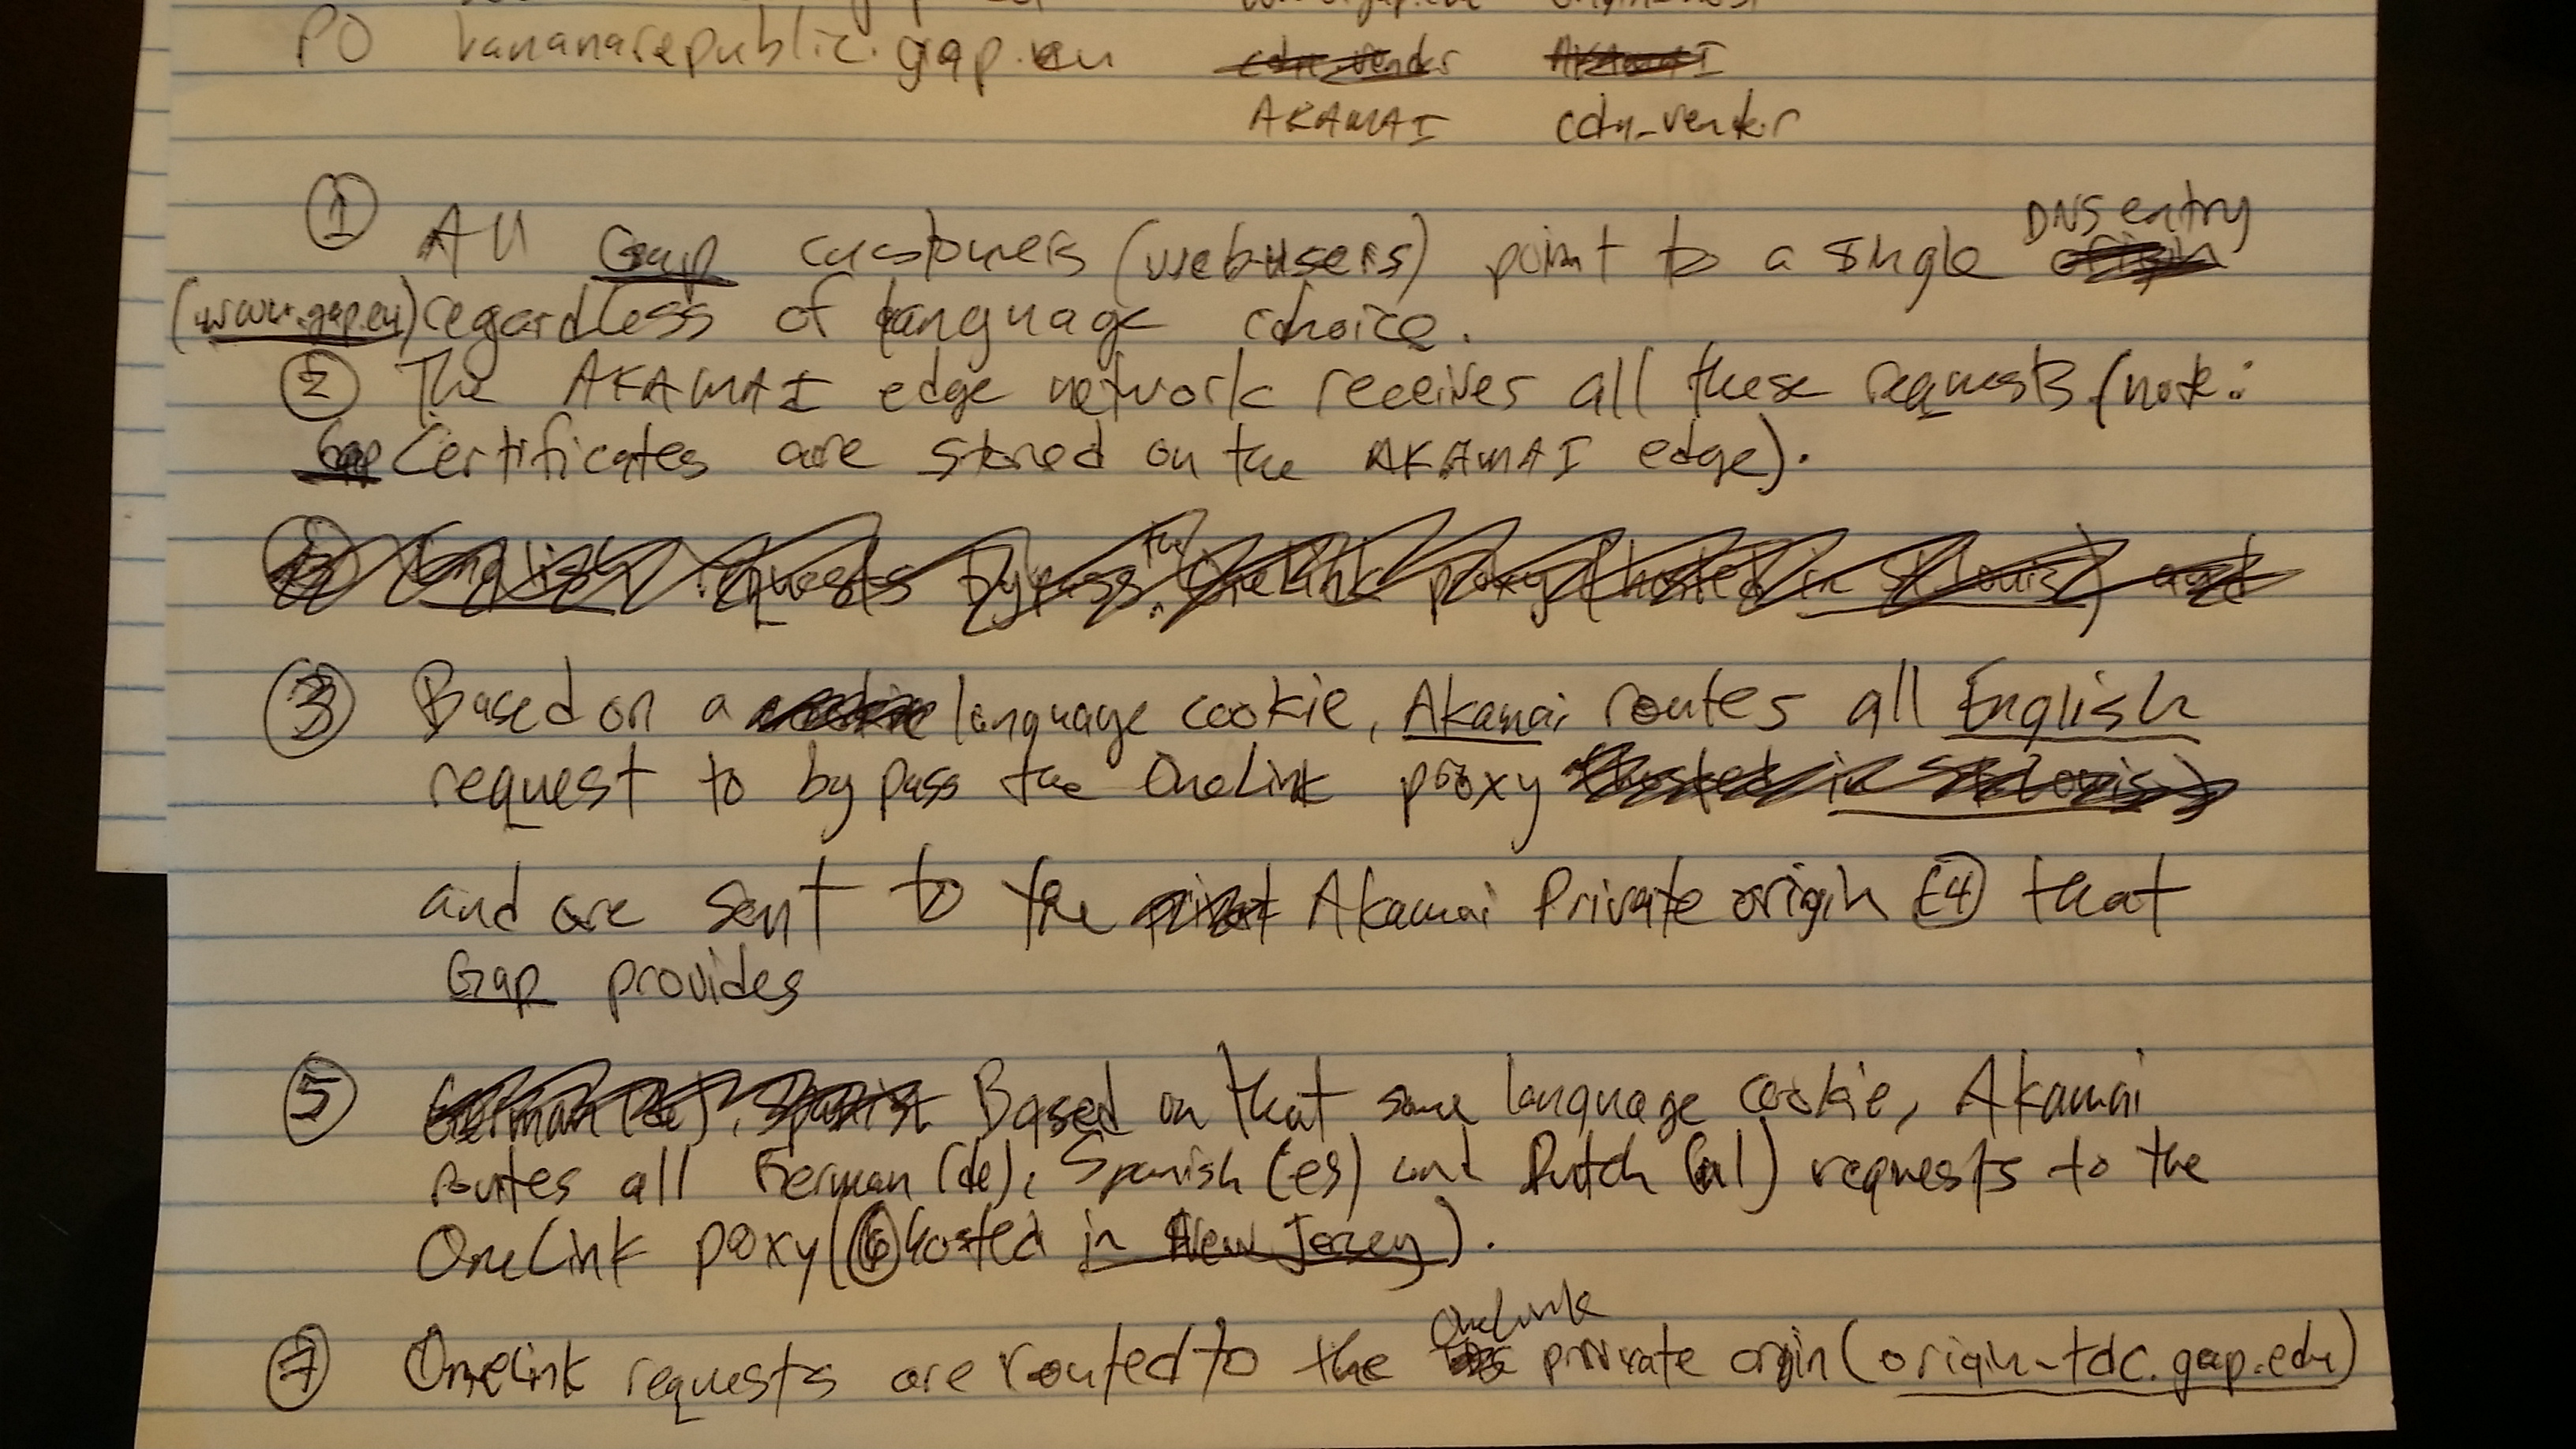 PO bananarepublic.gap.eu cdn_vendor AKAMAI
AKAMAI cdn_vendor
① All Gap customers (web users) point to a single DNS entry
(www.gap.eu) regardless of language choice.
② The AKAMAI edge network receives all these requests (note:
Gap Certificates are stored on the AKAMAI edge).
English requests bypass the OneLink proxy (hosted in St Louis) and
③ Based on a cookie language cookie, Akamai routes all English
request to bypass the OneLink proxy (hosted in St Louis)
and are sent to the Akamai Private origin (④) that
Gap provides
⑤ German (de), Spanish Based on that same language cookie, Akamai
routes all German (de), Spanish (es) and Dutch (nl) requests to the
OneLink proxy (⑥ hosted in New Jersey).
⑦ OneLink requests are routed to the OneLink private orgin (origin-tdc.gap.edu)